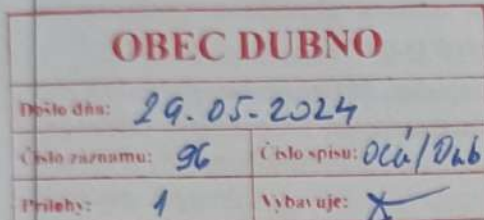 OBEC DUBNO
Došlo dňa: 29.05.2024
Číslo záznamu: 96 Číslo spisu: Ocú/Dub
Prílohy: 1 Vybavuje: